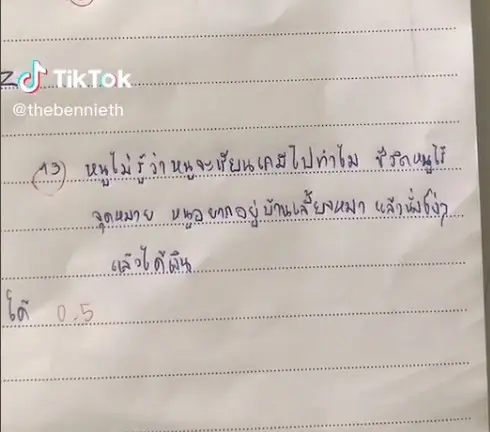 TikTok
@thebennieth
13) หนูไม่รู้ว่าหนูจะเรียนเคมีไปทำไม ชีวิตหนูไร้
จุดหมาย หนูอยากอยู่บ้านเลี้ยงหมา แล้วนั่งโง่ๆ
แล้วได้เงิน
ได้ 0.5